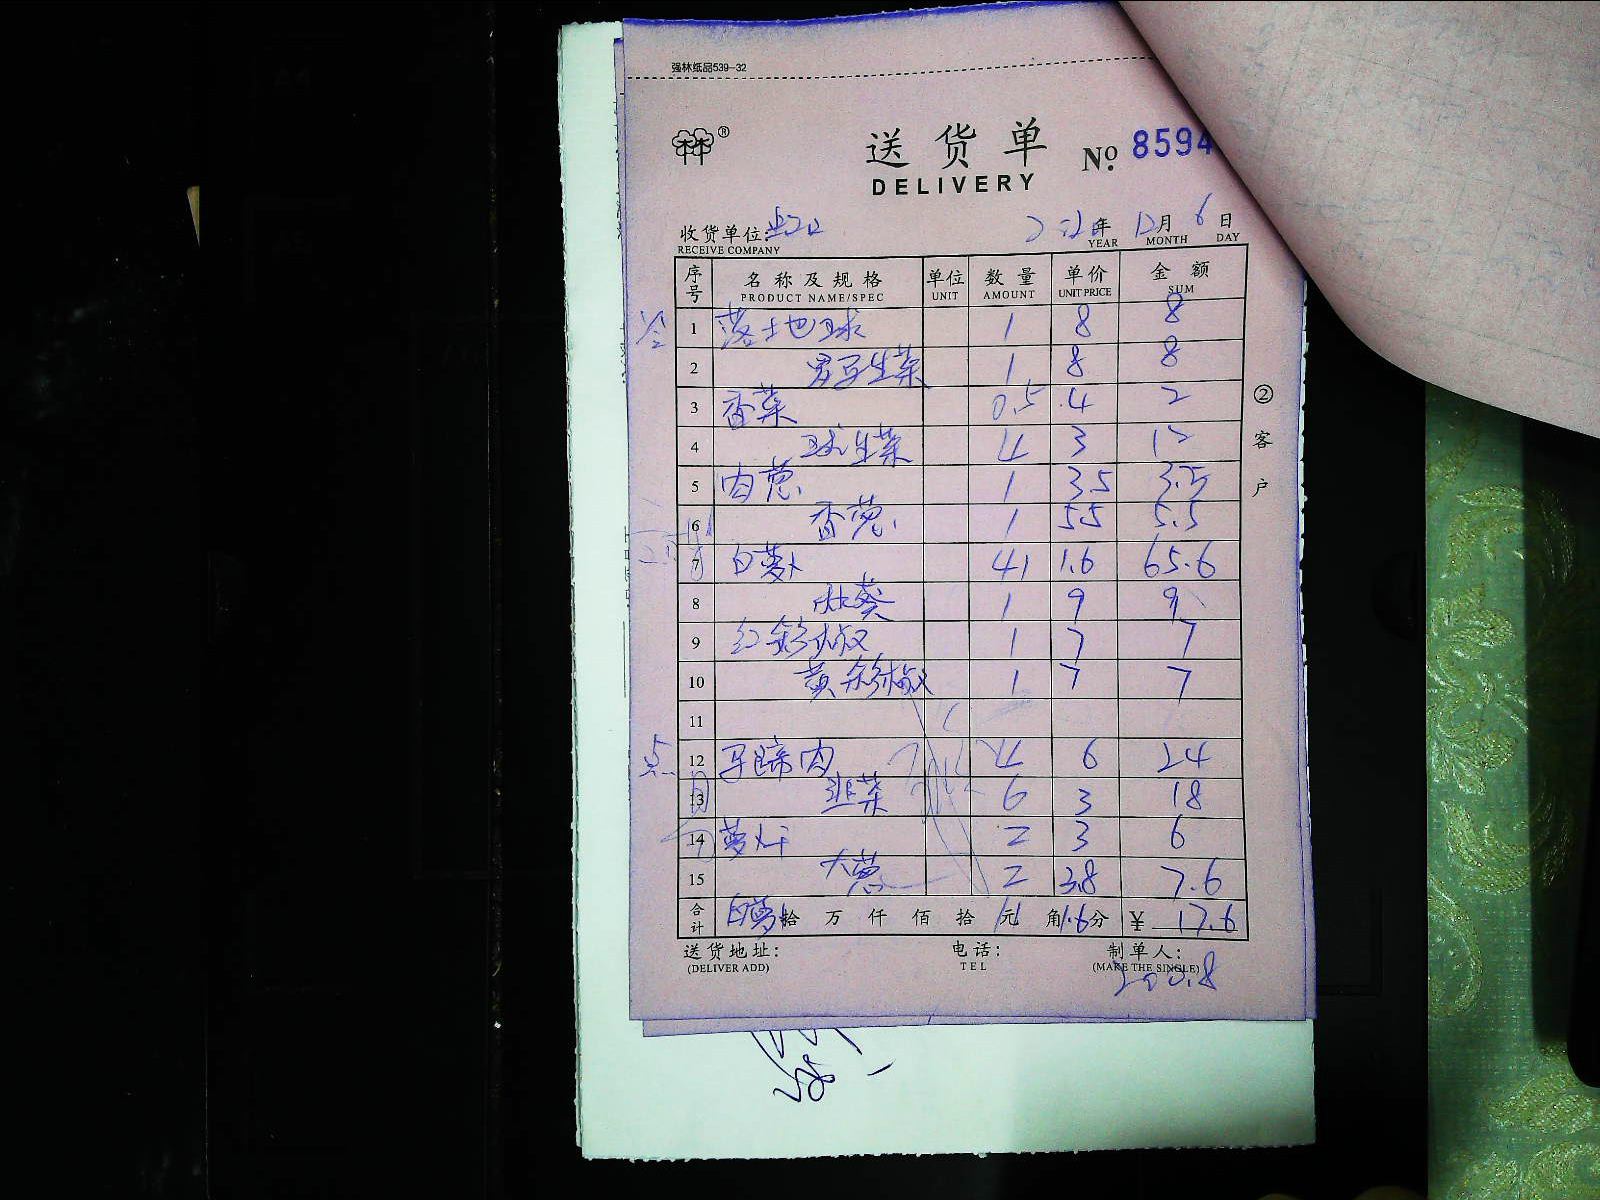 强林纸品539-32
®
送货单 № 8594
DELIVERY
收货单位: 年 12月 6日
RECEIVE COMPANY YEAR MONTH DAY
序号 名称及规格 单位 数量 单价 金额
PRODUCT NAME/SPEC UNIT AMOUNT UNIT PRICE SUM
1 落地球 1 8 8
2 罗马生菜 1 8 8
3 香菜 0.5 4 2
4 球生菜 4 3 12
5 肉葱 1 3.5 3.5
6 香葱 1 5.5 5.5
7 白萝卜 41 1.6 65.6
8 秋葵 1 9 9
9 红彩椒 1 7 7
10 黄彩椒 1 7 7
11
点 12 马蹄肉 4 6 24
13 韭菜 6 3 18
14 萝卜干 2 3 6
15 大葱 2 3.8 7.6
合计 白萝 拾 万 仟 佰 拾 元 角 1.6 分 ¥ 17.6
送货地址: 电话: 制单人:
(DELIVER ADD) TEL (MAKE THE SINGLE)
200.8
② 客户